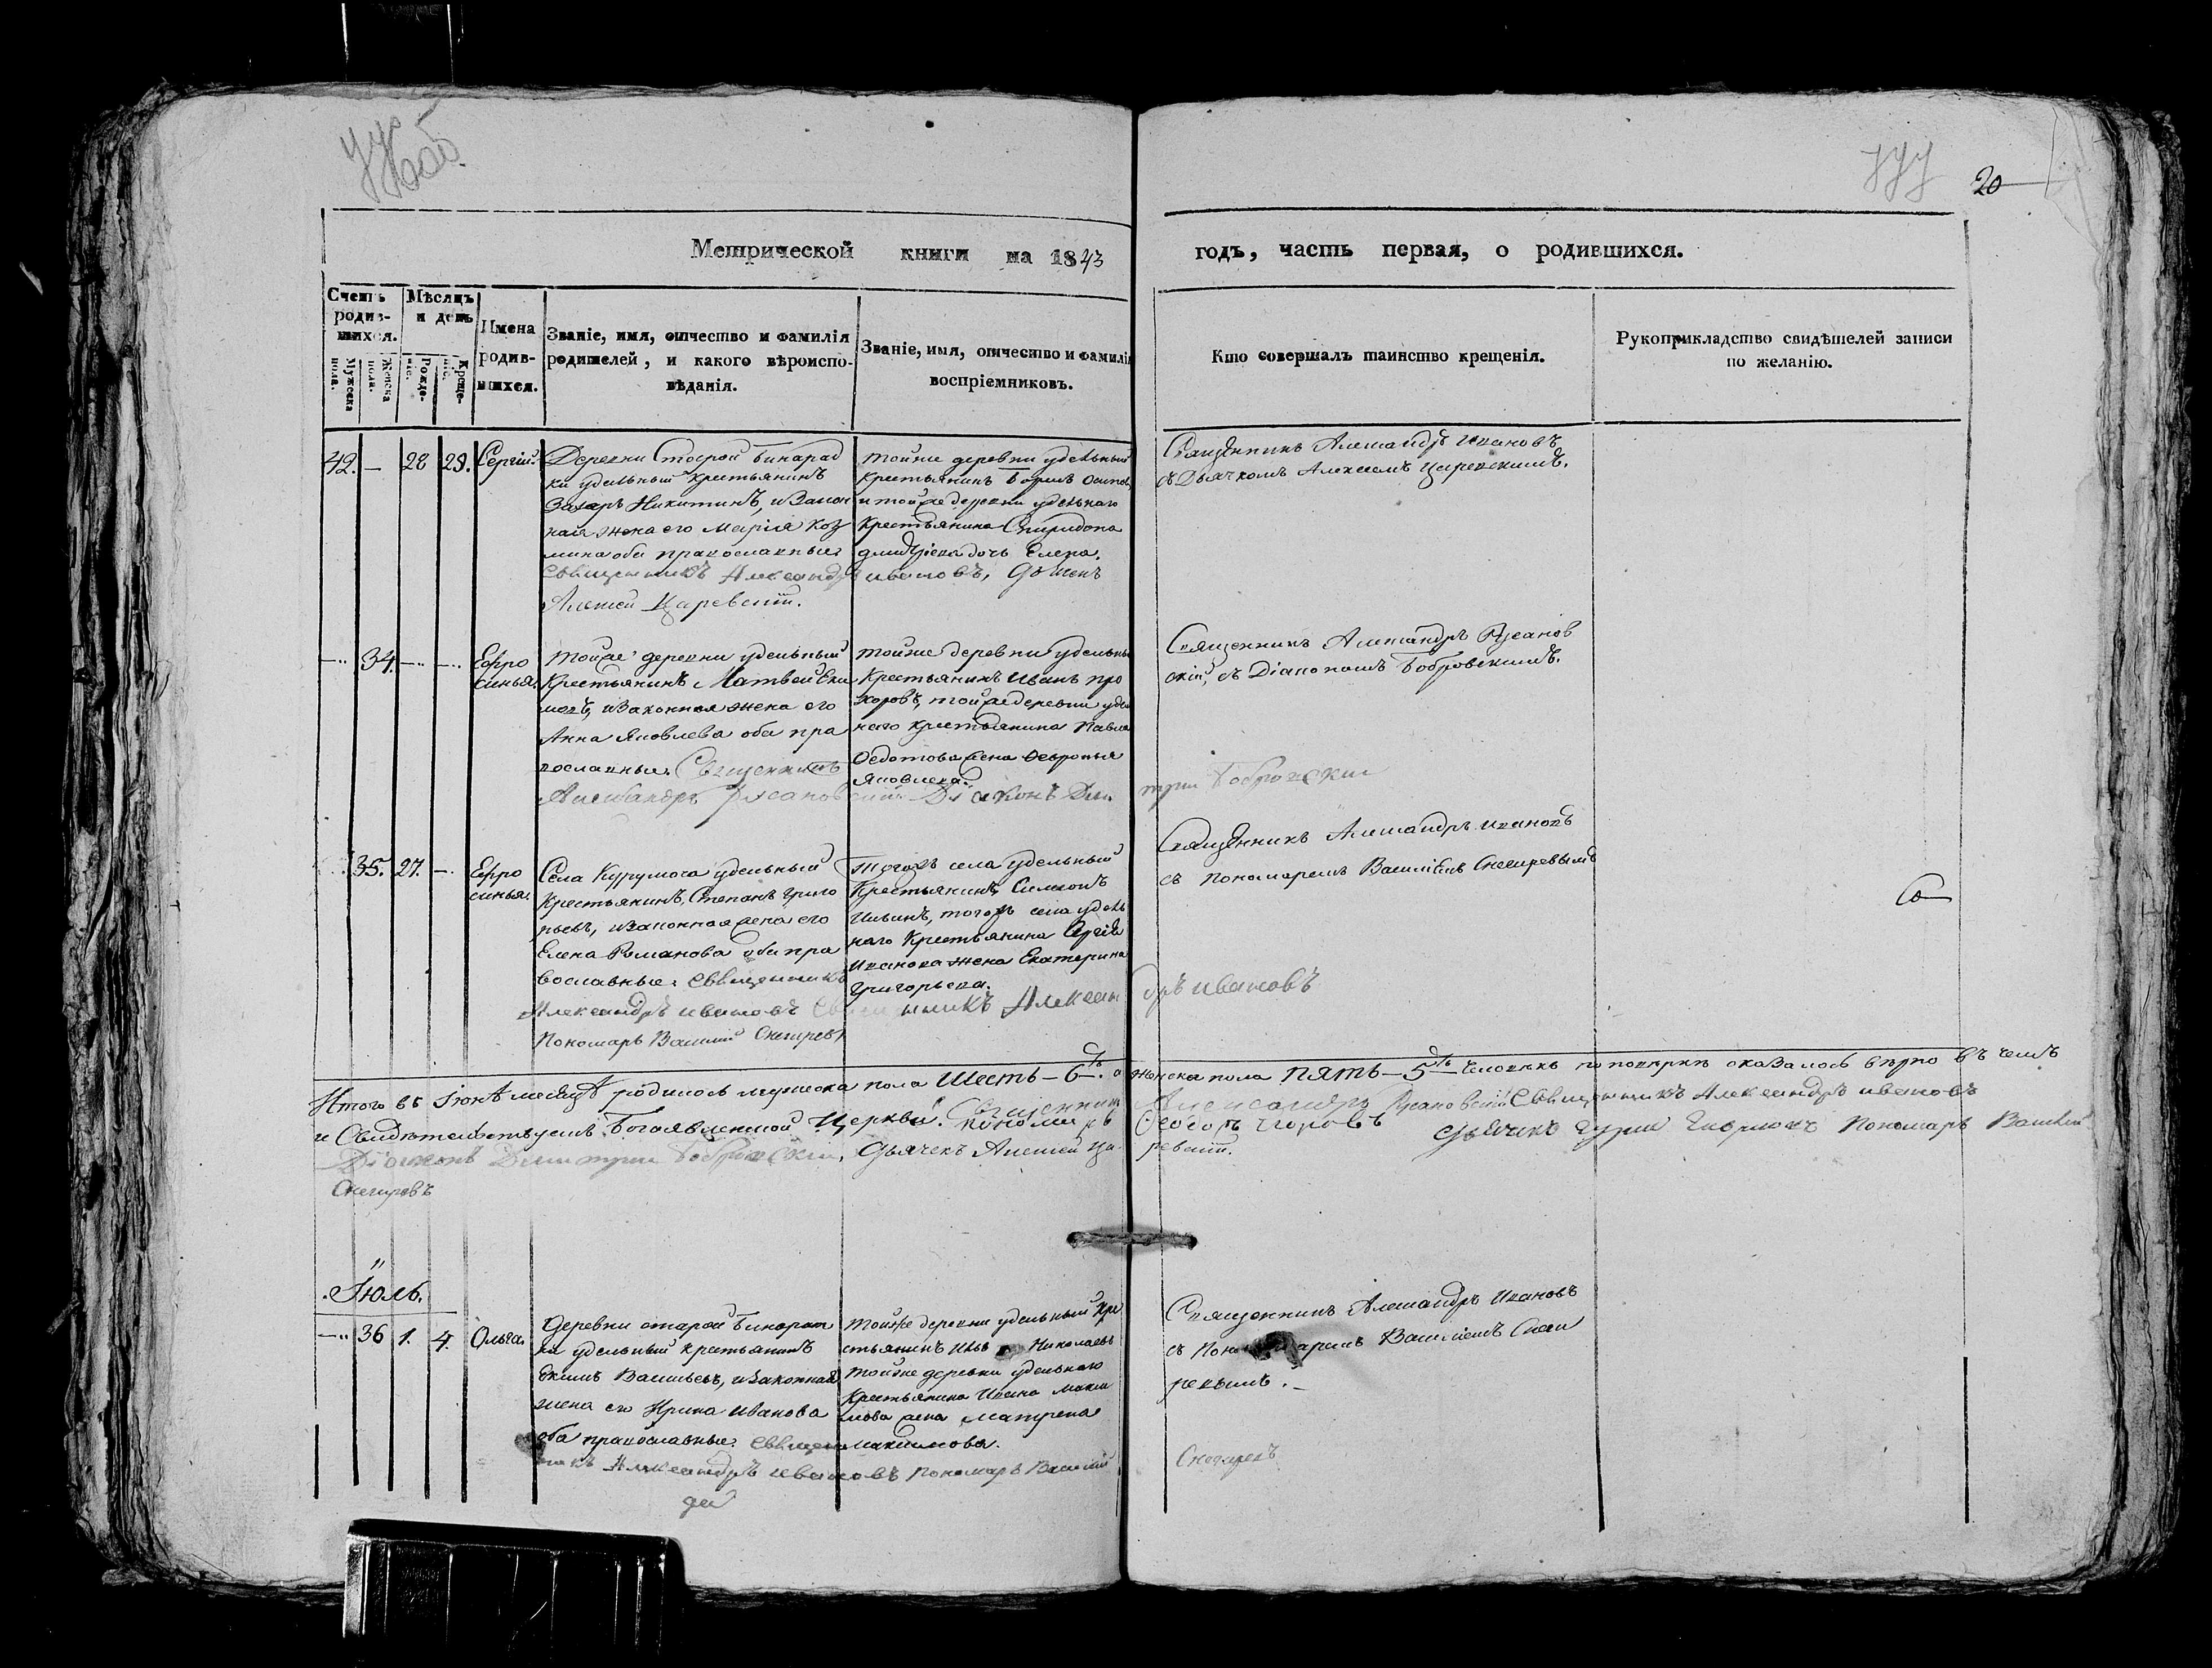 20
Метрической книги на 1843
годъ, часть первая, о родившихся.
Счетъ родив-шихся.
Мужеска пола.
Женска пола.
Мѣсяцъ и день
Рожде-нія.
Креще-нія.
Имена родив-шихся.
Званіе, имя, отчество и фамилія
родителей, и какого вѣроиспо-
вѣданія.
Званіе, имя, отчество и фамилія
воспріемниковъ.
Кто совершалъ таинство крещенія.
Рукоприкладство свидѣтелей записи
по желанію.
42. — 28 29. Сергій.
Деревни Старой Бинарад
ки удельный крестьянинъ
Захаръ Никитинъ, и закон
ная жена его Марія Коз
мина оба православные
Священникъ Александръ Ивановъ, Дьячекъ
Алексей Царевский.
тойже деревни удельный
крестьянинъ Борисъ Осипов,
и тойже деревни удельнаго
крестьянина Спиридона
Дмитріева дочь Елена.
Священникъ Александръ Ивановъ
съ Дьячкомъ Алексеемъ Царевскимъ.
34. Ефро
синья.
Тойже деревни удельный
крестьянинъ Матвей Еки
мовъ, и законная жена его
Анна Яковлева оба пра
вославные. Священникъ
Александръ Русановский Діаконъ Дми
трий Бобровский
тойже деревни удельны
крестьянинъ Иванъ Про
хоровъ, тойже деревни удел
наго крестьянина Павла
Федотова жена Февронья
Яковлева.
Священникъ Александръ Русанов
скій, съ Діакономъ Бобровскимъ.
35. 27. — Ефро
синья.
Села Курумоча удельный
крестьянинъ, Степанъ Григо
рьевъ, и законная жена его
Елена Романова оба пра
вославные. Священникъ
Александръ Ивановъ
Пономарь Василий Снегирев
тогожъ села удельный
крестьянинъ Симеонъ
Ильинъ, тогожъ села удель
наго крестьянина Сергѣя
Иванова жена Екатерина
Григорьева.
Священникъ Александръ Ивановъ
съ Пономаремъ Василіемъ Снегиревымъ
Итого въ Іюнѣ месяцѣ родилось мужеска пола шесть — 6ть. а женска пола пять — 5ть человекъ по поверке оказалось верно въ чемъ
и Свидетельствуемъ Богоявленской Церкви. Священникъ Александръ Русановский Священникъ Александръ Ивановъ
Діаконъ Димитрий Бобровский, Дьячекъ Алексей Царевский. Пономарь Федоръ Егоровъ Дьячекъ Гурий Гавриловъ Пономарь Василий
Снегиревъ
Іюль.
36 1. 4. Ольга.
Деревни старой Бинарат
ки удельный крестьянинъ
Екимъ Васильевъ, и законная
жена его Ирина Иванова
оба православные. Священ
никъ Александръ Ивановъ Пономарь Василий
Снегиревъ
тойже деревни удельный кре
стьянинъ Николаевъ
тойже деревни удельнаго
крестьянина Ивана Макси
мова жена Матрена
Максимова.
Священникъ Александръ Ивановъ
съ Пономаремъ Василіемъ Снеги
ревымъ.